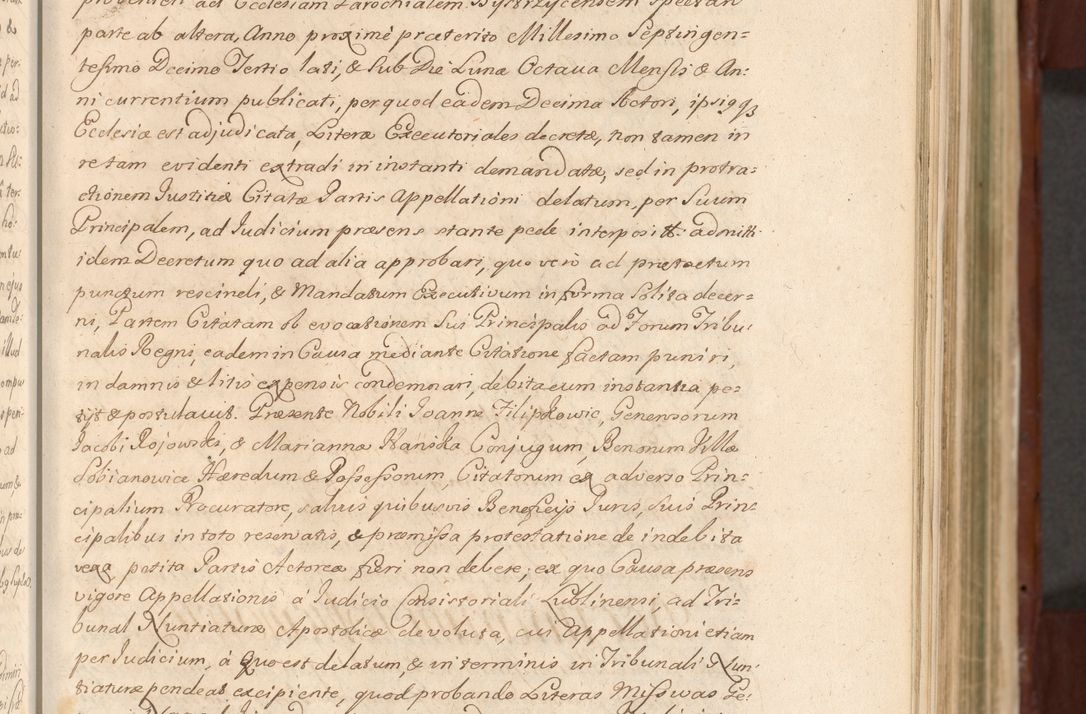 parte ab altera, Anno proximè præterito Millesimo Septingen=
tesimo Decimo Tertio lati, & sub Die Lunæ Octaua Mensis & An=
ni currentium publicati, per quod eadem Decima Actori, ipsiqq3
Ecclesiæ est adjudicata, Literæ Executoriales decretæ, non tamen in
re tam evidenti extradi in instanti demandatæ, sed in protra=
ctionem Justitiæ Citatæ Partis Appellationi delatum, per Suum
Principalem, ad Judicium præsens stante pede interposit: admitti
idem Decretum quo ad alia approbari, quo verò ad prætactum
punctum rescindi, & Mandatum Executivum in forma solita decer=
ni, Partem Citatam ob evocationem sui Principalis ad Forum Tribu=
nalis Regni, eadem in Causa mediante Citatione factam puniri,
in damnis & litis expensis condemnari, debita cum instantia pe=
tijt & postulauit. Præsente Nobili Joanne Filipkowic, Generosorum
Jacobi Rojowski, & Mariannæ Hanska Conjugum, Bonorum Villæ
Sobianowice Hæredum & Possessorum, Citatorum ex adverso Prin=
cipalium Procuratore, salvis quibusvis Beneficijs Juris, suis Prin=
cipalibus in toto reservatis, & præmissa protestatione de indebita
petita Partis Actoreæ fieri non debere, ex quo Causa præsens
vigore Appellationis a Judicio Consistoriali Lublinensi, ad Tri=
bunal Nuntiaturæ Apostolicæ devoluta, cui Appellationi etiam
per Judicium, à quo est delatum, & in terminis in Tribunali Nun=
tiaturæ pendeat excipiente, quod probando Literas Missivas Ge=